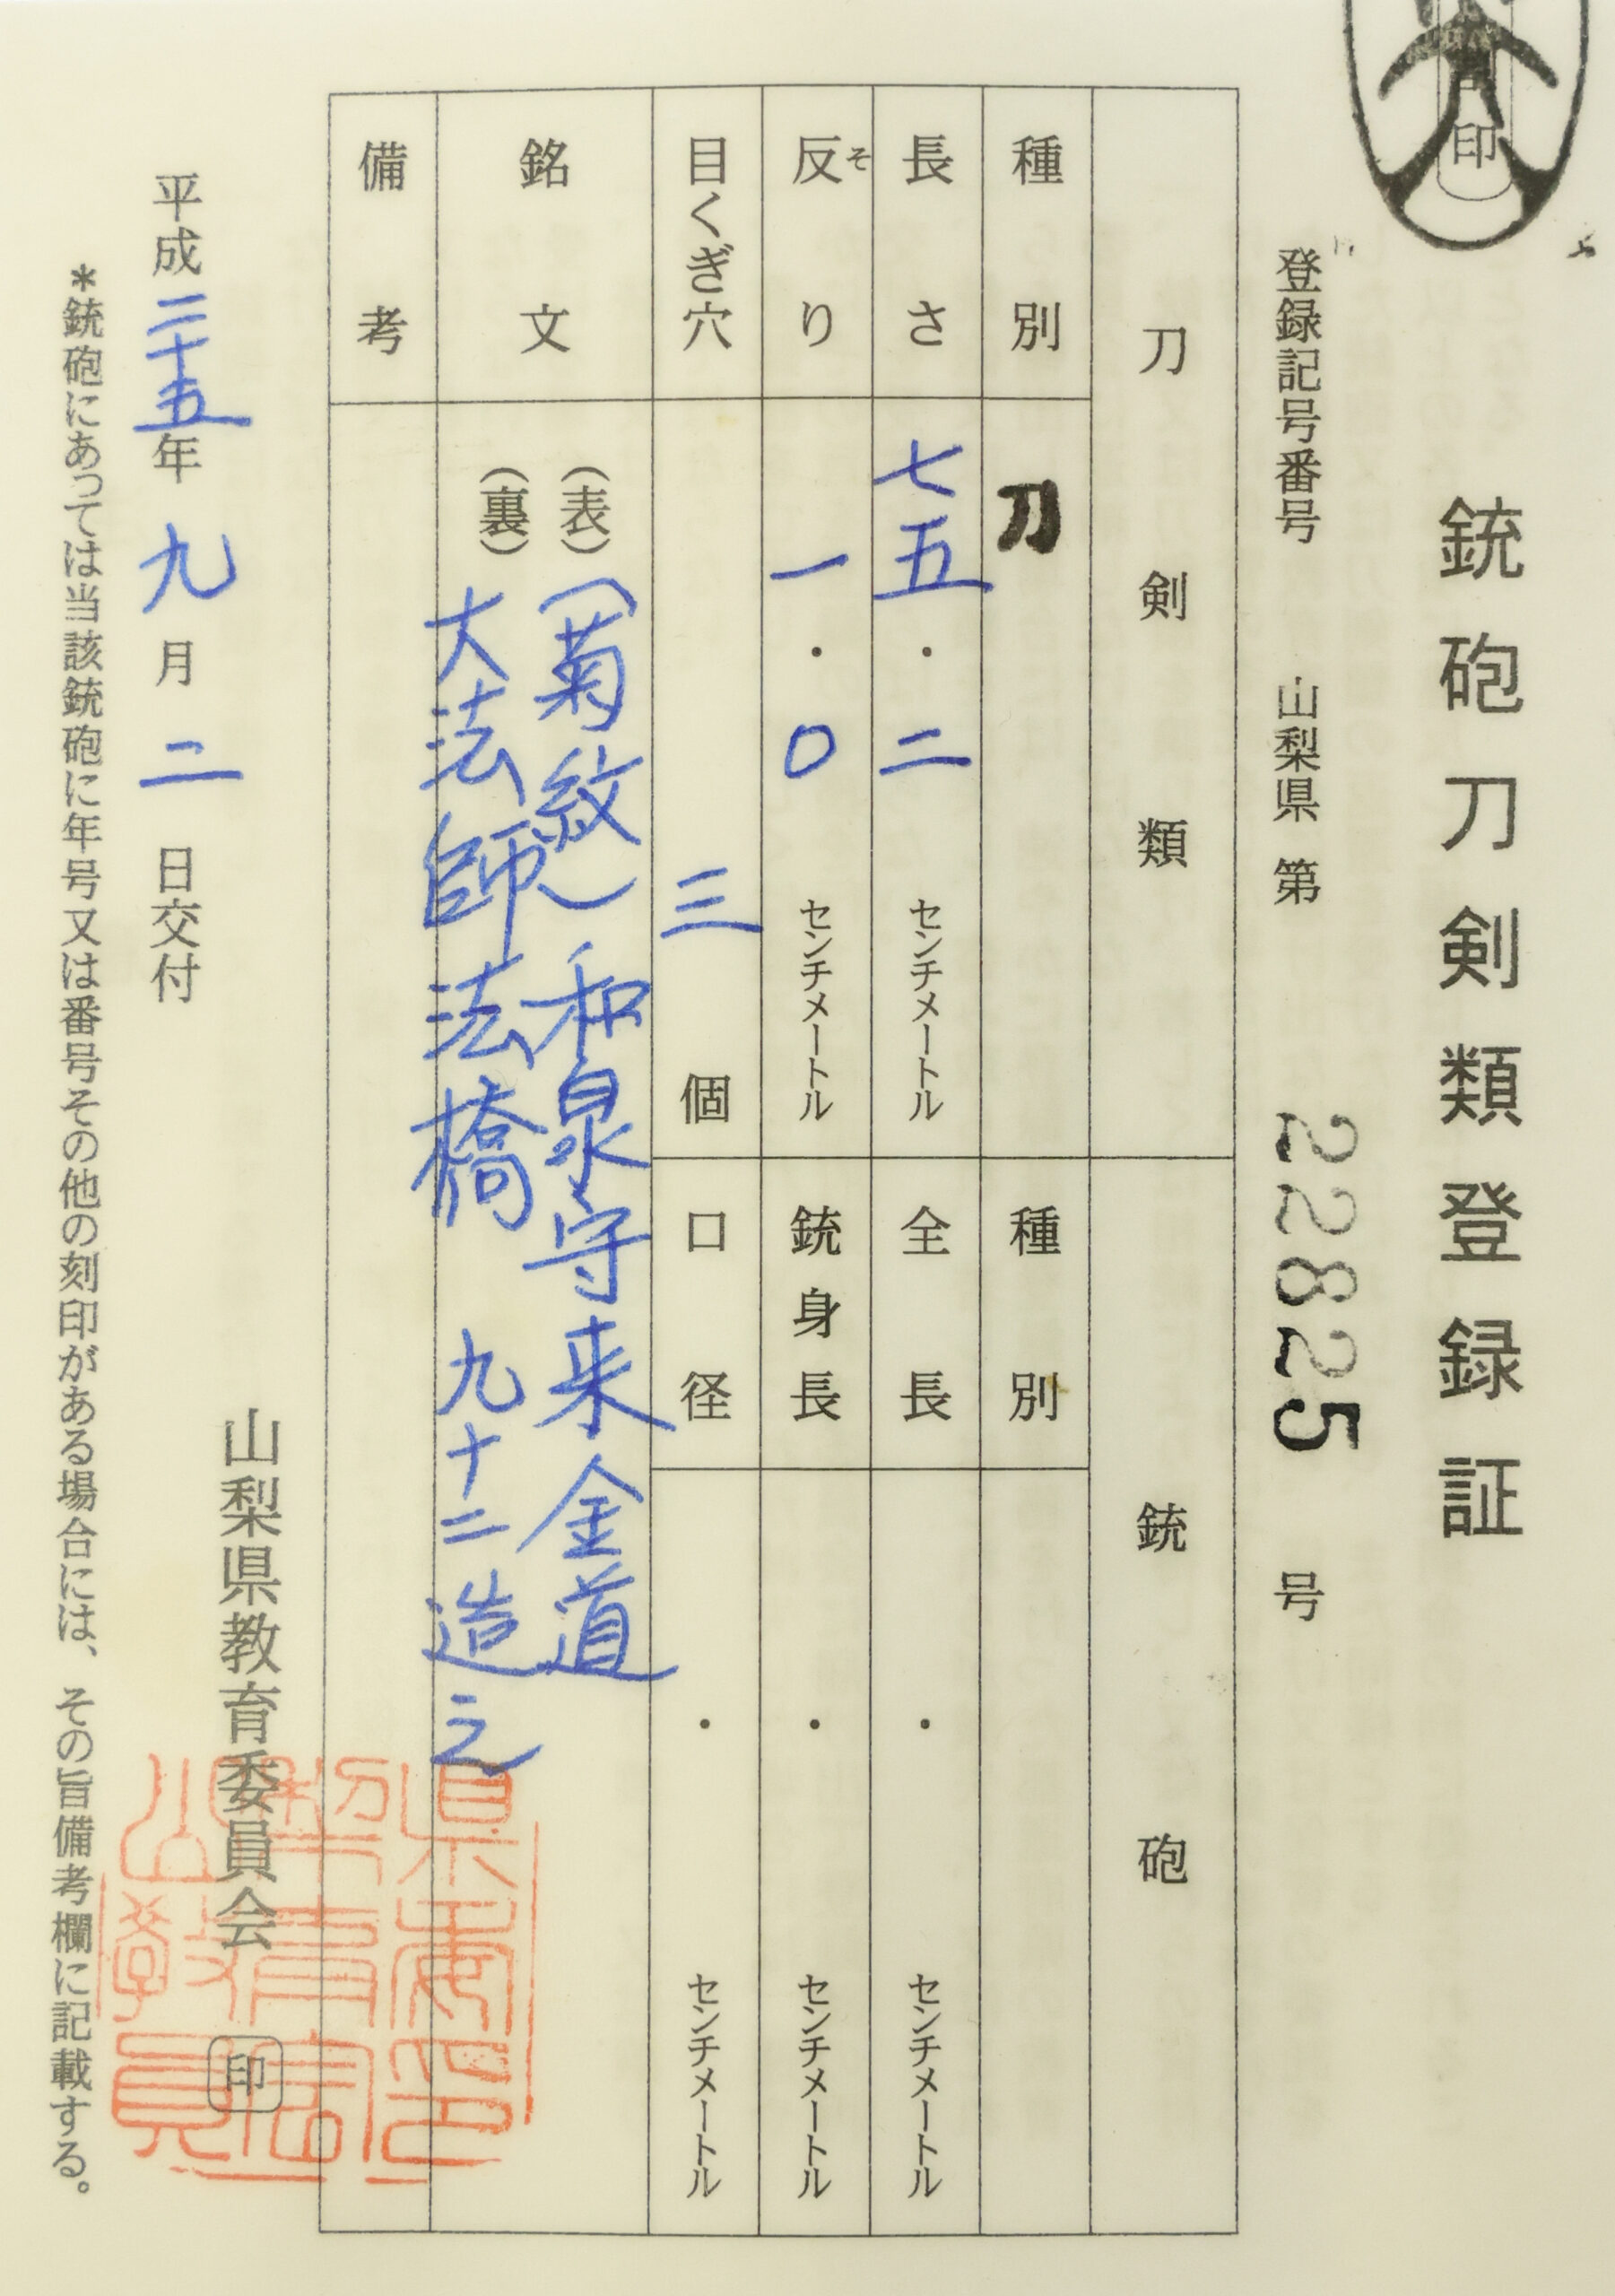 銃砲刀剣類登録証
登録記号番号 山梨県 第 22825 号
刀剣類
種別 刀
長さ 七五・二 センチメートル
反り そ 一・〇 センチメートル
目くぎ穴 三 個
銘文
(表) (菊紋) 和泉守来金道
(裏) 大法師法橋 九十二造之
備考
銃砲
種別
全長 ・ センチメートル
銃身長 ・ センチメートル
口径 ・ センチメートル
山梨県教育委員会 印
平成二十五年 九月 二 日交付
*銃砲にあっては当該銃砲に年号又は番号その他の刻印がある場合には、その旨備考欄に記載する。
印